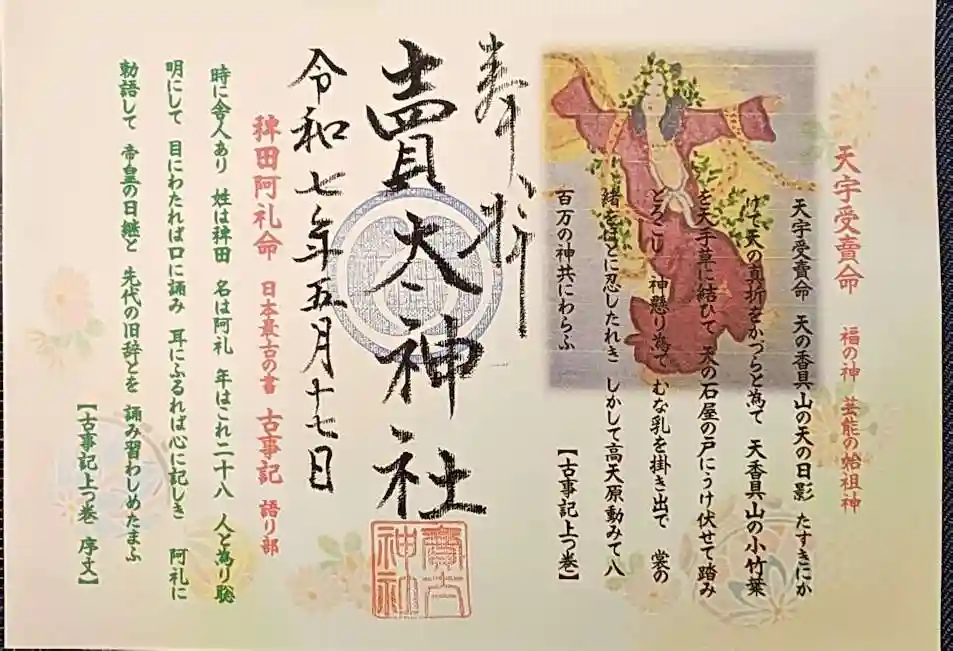 天宇受賣命 福の神 芸能の始祖神
天宇受賣命 天の香具山の天の日影 たすきにか
けて天の真折をかづらと為て 天香具山の小竹葉
を天手草に結ひて 天の石屋の戸にうけ伏せて踏み
とろこし 神懸り為て むな乳を掛き出で 裳の
緒をほとに忍したれき しかして高天原動みて八
百万の神共にわらふ
【古事記上つ巻】
奉拝
賣太神社
賣太神社
令和七年五月十七日
稗田阿礼命 日本最古の書 古事記 語り部
時に舎人あり 姓は稗田 名は阿礼 年はこれ二十八 人と為り聡
明にして 目にわたれば口に誦み 耳にふるれば心に記しき 阿礼に
勅語して 帝皇の日継と 先代の旧辞とを 誦み習わしめたまふ
【古事記上つ巻 序文】